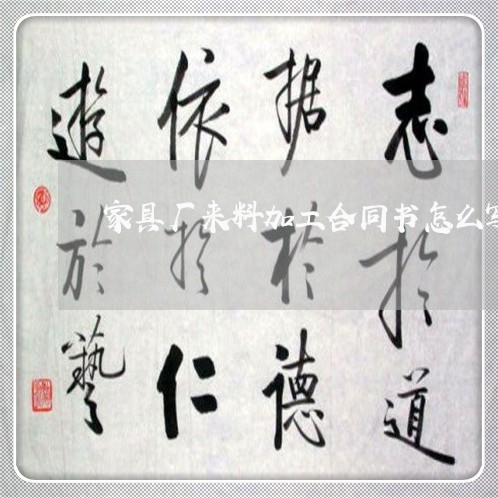 志於道
据於德
依於仁
遊於藝
家具厂来料加工合同书怎么